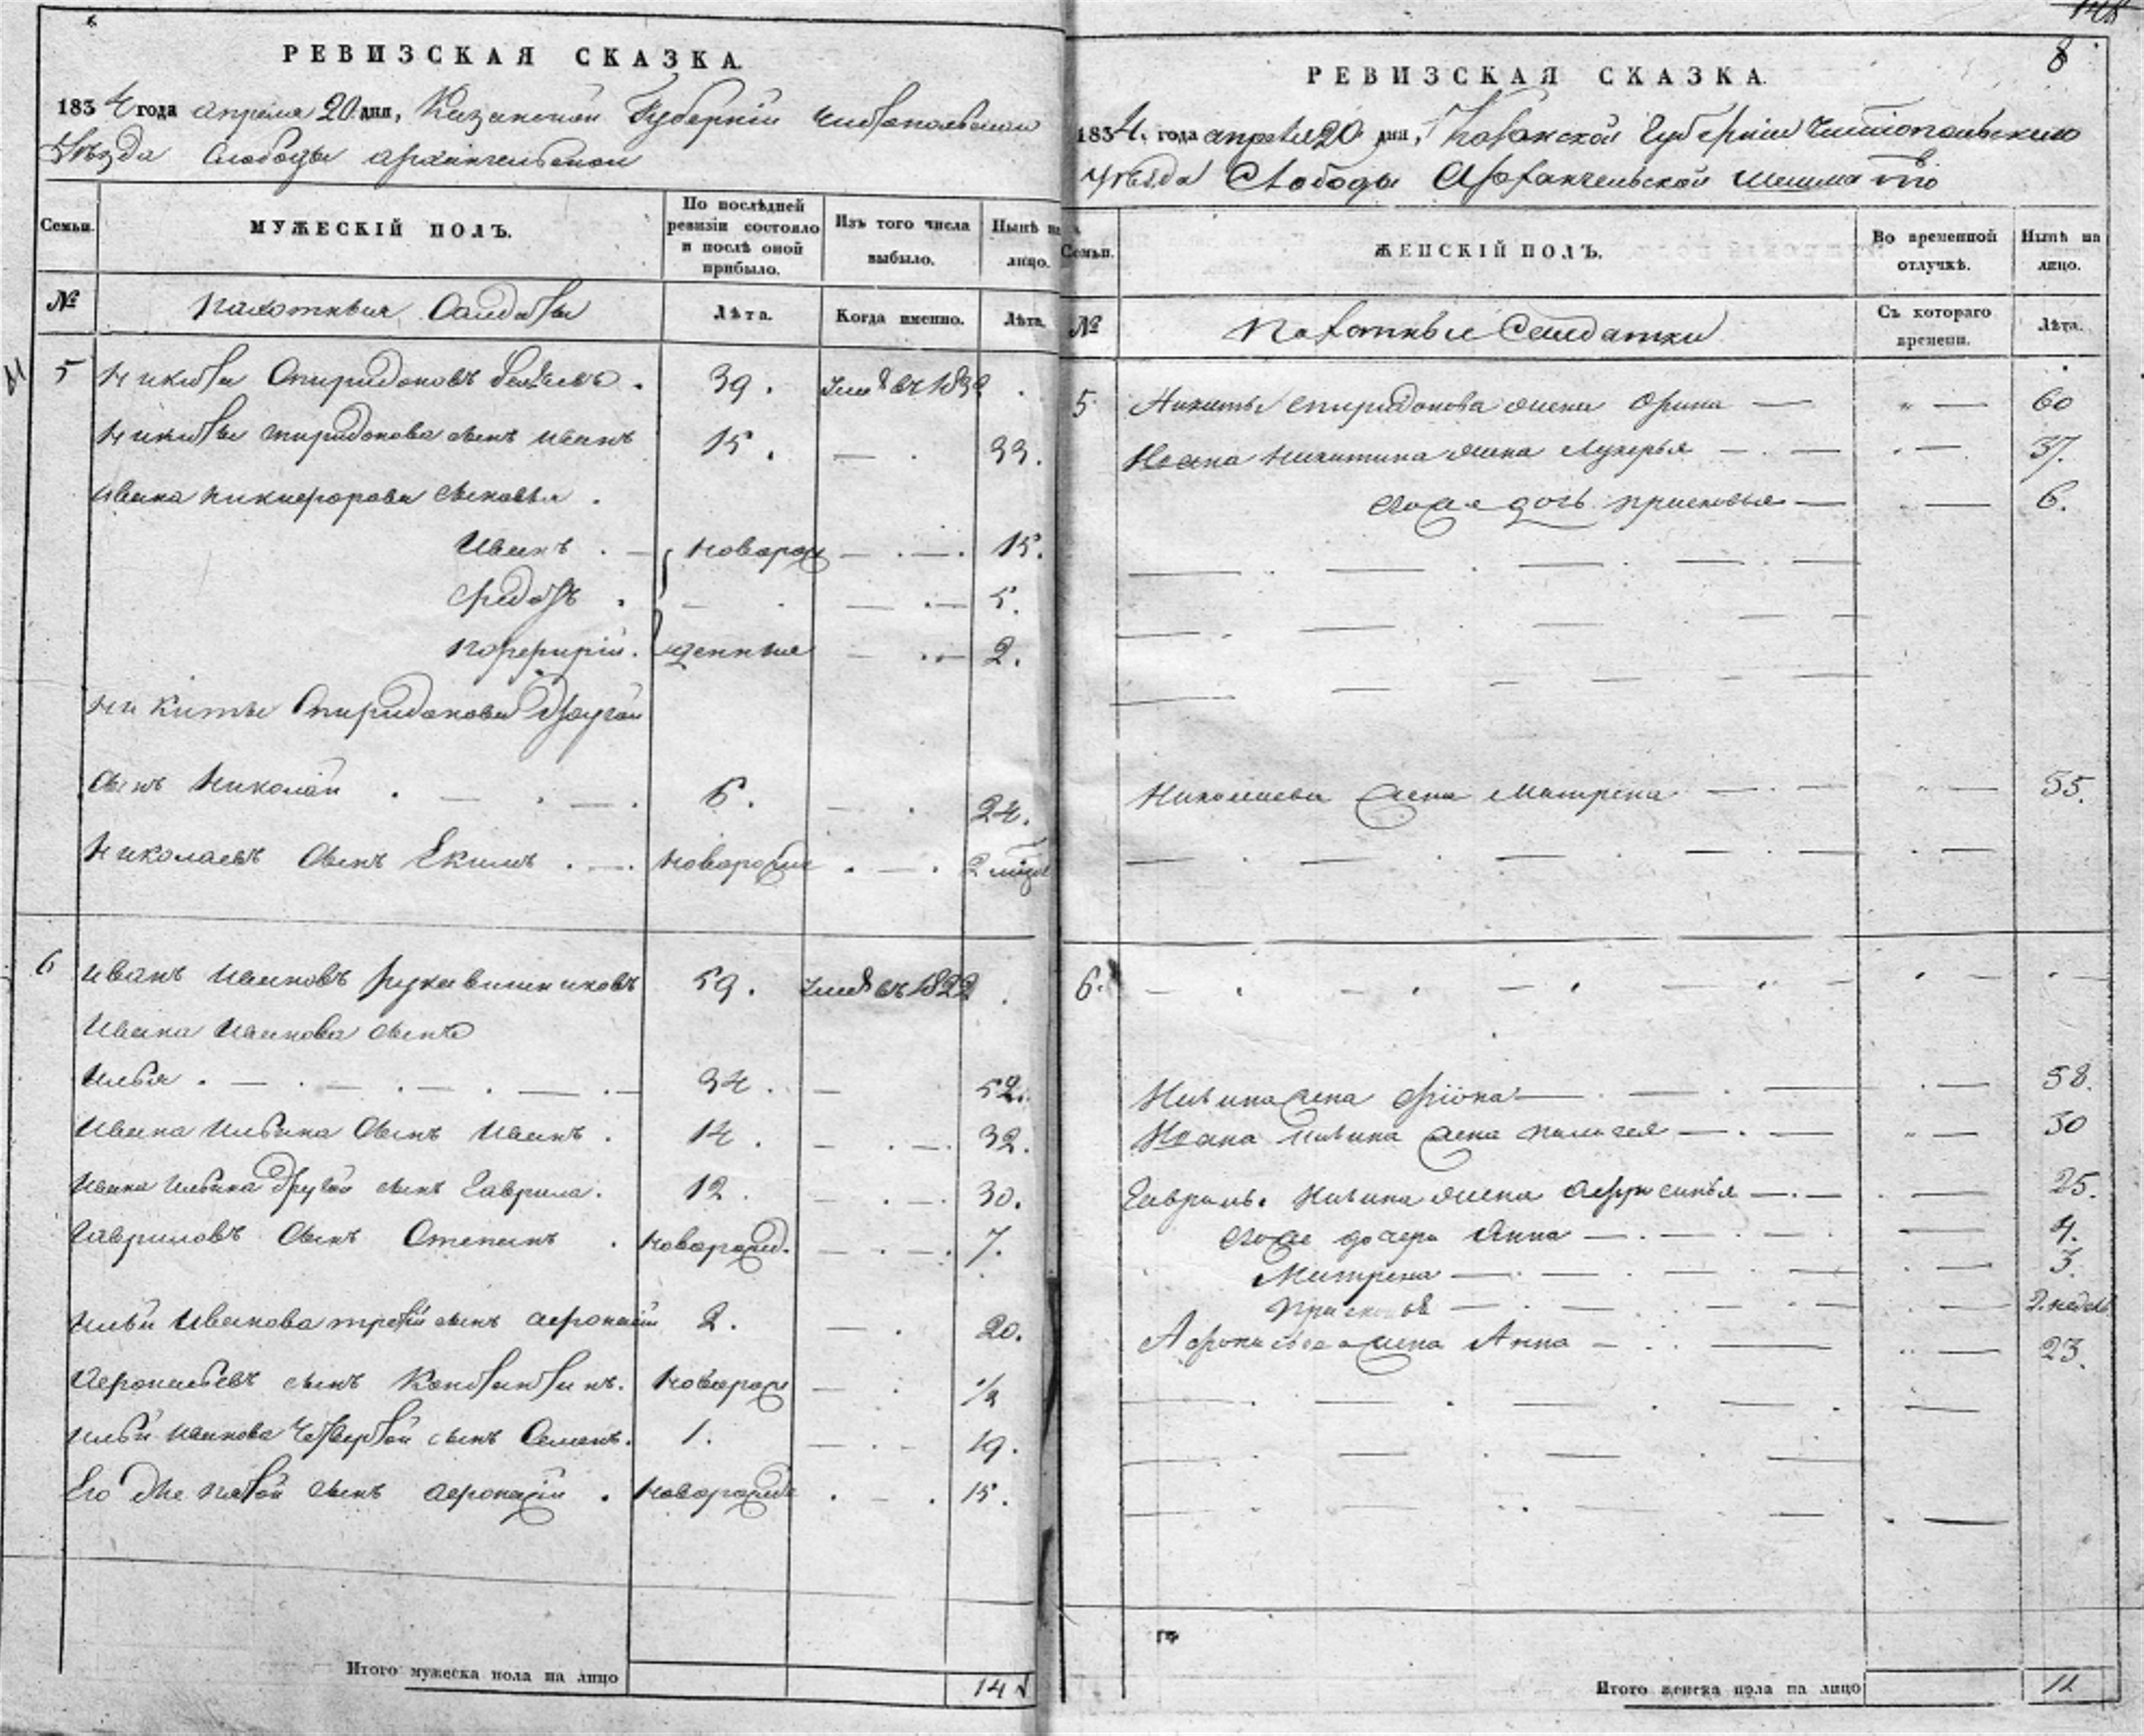 РЕВИЗСКАЯ СКАЗКА.
1834 года апреля 20 дня, Казанской Губернии Чистопольскаго
Уѣзда Слободы Архангельской
Семьи.
МУЖЕСКІЙ ПОЛЪ.
По послѣдней ревизіи состояло и послѣ оной прибыло.
Изъ того числа выбыло.
Нынѣ на лицо.
№
Пахотныя Солдаты
Лѣта.
Когда именно.
Лѣта.
5 Никита Спиридоновъ 39. Уме. въ 183
Никиты Спиридонова сынъ Иванъ 15. 33.
Ивана Никифорова сыновья
Иванъ новорож 15.
Федотъ 5.
Порфирій. денныя 2.
Никиты Спиридонова другой
сынъ Николай 6. 24.
Николаевъ сынъ Екимъ новорожде 2
6 Иванъ Ивановъ Рукавишниковъ 59. Уме. въ 1822
Ивана Иванова сынъ
Илья 34. 52.
Ивана Ильина сынъ Иванъ 14. 32.
Ивана Ильина другой сынъ Гаврила. 12. 30.
Гавриловъ сынъ Степанъ новорожд. 7.
Ильи Иванова третій сынъ Афонасій 2. 20.
Афонасьевъ сынъ Константинъ. новорож 1/2
Ильи Иванова четвертой сынъ Семенъ. 1. 19.
Его же пятой сынъ Афонасій новорожде 15.
Итого мужеска пола на лицо 14
8
РЕВИЗСКАЯ СКАЗКА.
1834. года апреля 20 дня, Казанской Губерніи Чистопольскаго
Уѣзда Слободы Архангельской Шешма тожъ
Семьи.
ЖЕНСКІЙ ПОЛЪ.
Во временной отлучкѣ.
Нынѣ на лицо.
№
Пахотныя Солдатки
Съ котораго времени.
Лѣта.
5. Никиты Спиридонова жена Орина 60
Ивана Никитина жена Лукерья 37.
его же дочь Присковья 6.
Николаева жена Матрена 35.
6.
Ильина жена 58.
Ивана Ильина жена Пилагея 30
Гаврилы Ильина жена Афросинья 25.
его же дочери Анна 4.
Матрена 3.
Присковья 2. недел
Афонасьева жена Анна 23.
Итого женска пола на лицо 11